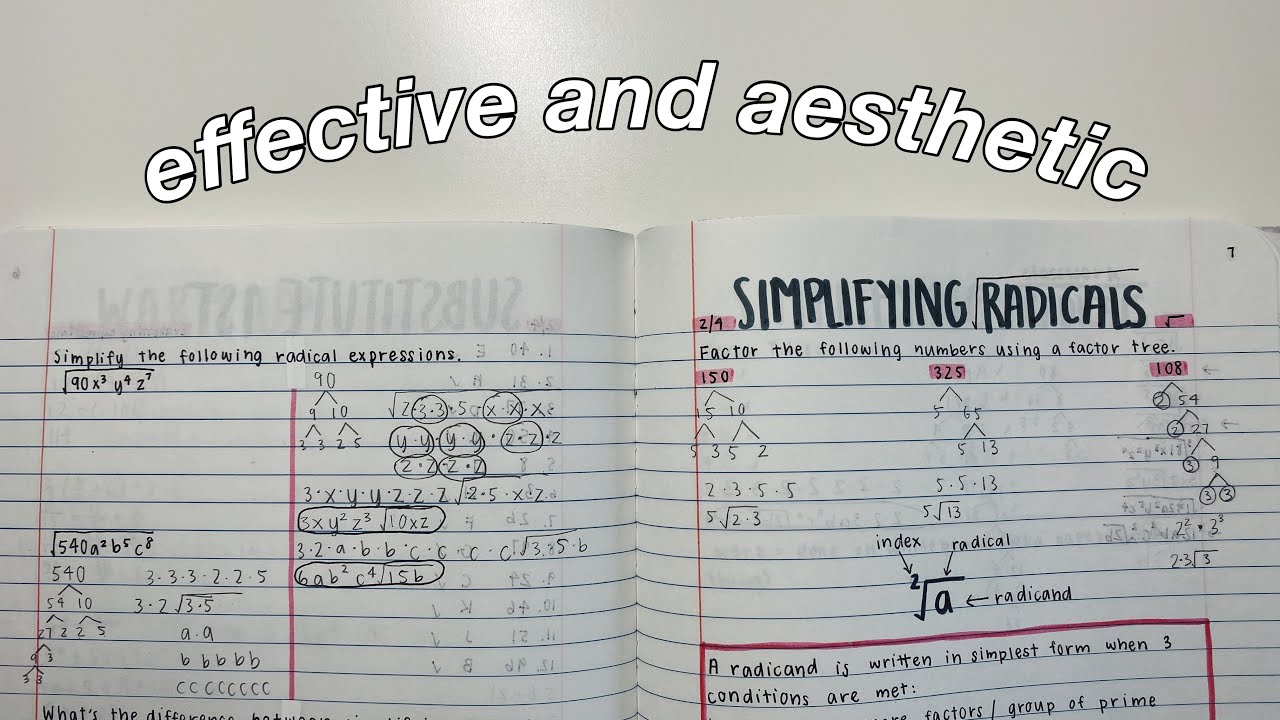 effective and aesthetic
Simplify the following radical expressions.
√90x³ y⁴ z⁷
90
9 10
3 3 2 5
√2·3·3·5·x·x·x
y·y·y·y·z·z·z
z·z·z·z
3·x·y·y·z·z·z √2·5·x·z
3xy²z³ √10xz
√540a²b⁵c⁸
540
54 10
27 2 2 5
9 3
3 3
3·3·3·2·2·5
3·2 √3·5
a·a
b b b b b
c c c c c c c c
3·2·a·b·b·c·c·c·c √3·5·b
6ab²c⁴√15b
What's the difference between
7
SIMPLIFYING √RADICALS
2/4 √
Factor the following numbers using a factor tree.
150 325 108 ←
15 10
5 3 5 2
2·3·5·5
5√2·3
5 65
5 13
5·5·13
5√13
2 54
2 27 ←
3 9
3 3
2²·3³
2·3√3
index radical
²√a ← radicand
A radicand is written in simplest form when 3
conditions are met:
factors / group of prime